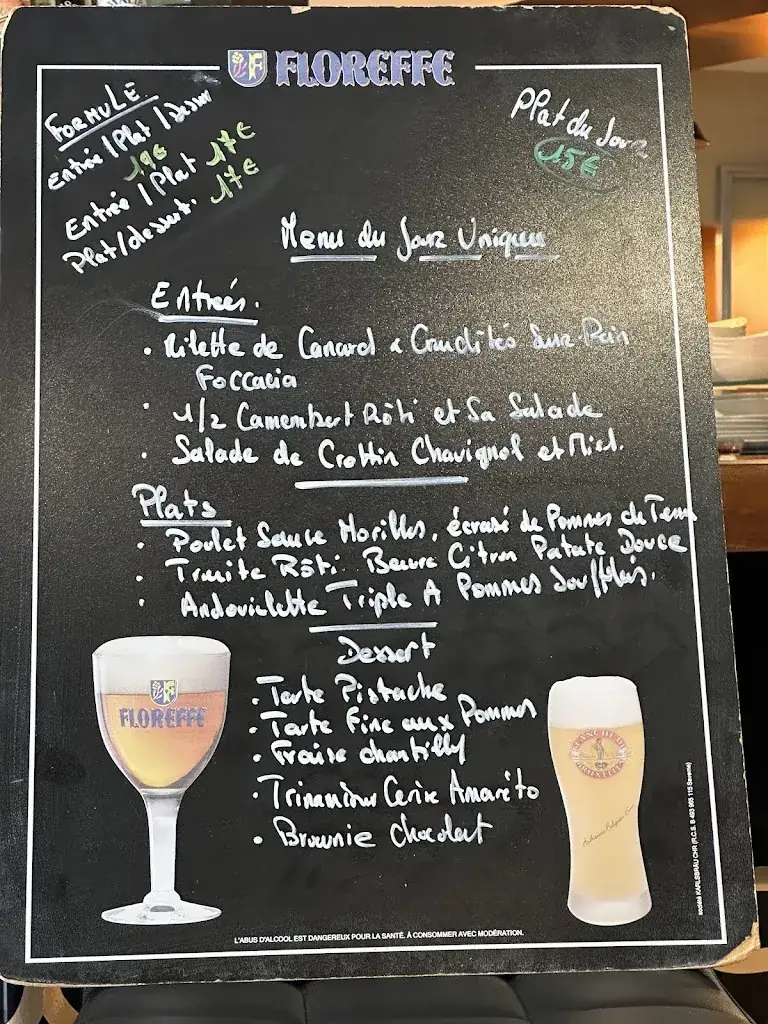 FLOREFFE
FORMULE
Entrée / Plat / Dessert
19€
Entrée / Plat 17€
Plat / dessert. 17€
Plat du Jour
15€
Menu du Jour Unique
Entrées.
• Rilette de Canard & Crudités Sur Pain
Foccacia
• 1/2 Camembert Rôti et Sa Salade
• Salade de Crottin Chavignol et Miel.
Plats
• Poulet Sauce Morilles, écrasé de Pommes de Terre
• Truite Rôti Beurre Citron Patate Douce
• Andouielette Triple A Pommes Soufflés.
Dessert
• Tarte Pistache
• Tarte Fine aux Pommes
• Fraise chantilly
• Cerise Amaréto
• Brownie chocolat
FLOREFFE
BLANCHE DE
BRUXELLES
L'ABUS D'ALCOOL EST DANGEREUX POUR LA SANTÉ. À CONSOMMER AVEC MODÉRATION.
société KARLSBRÄU CHR (R.C.S. B 493 985 115 Saverne)